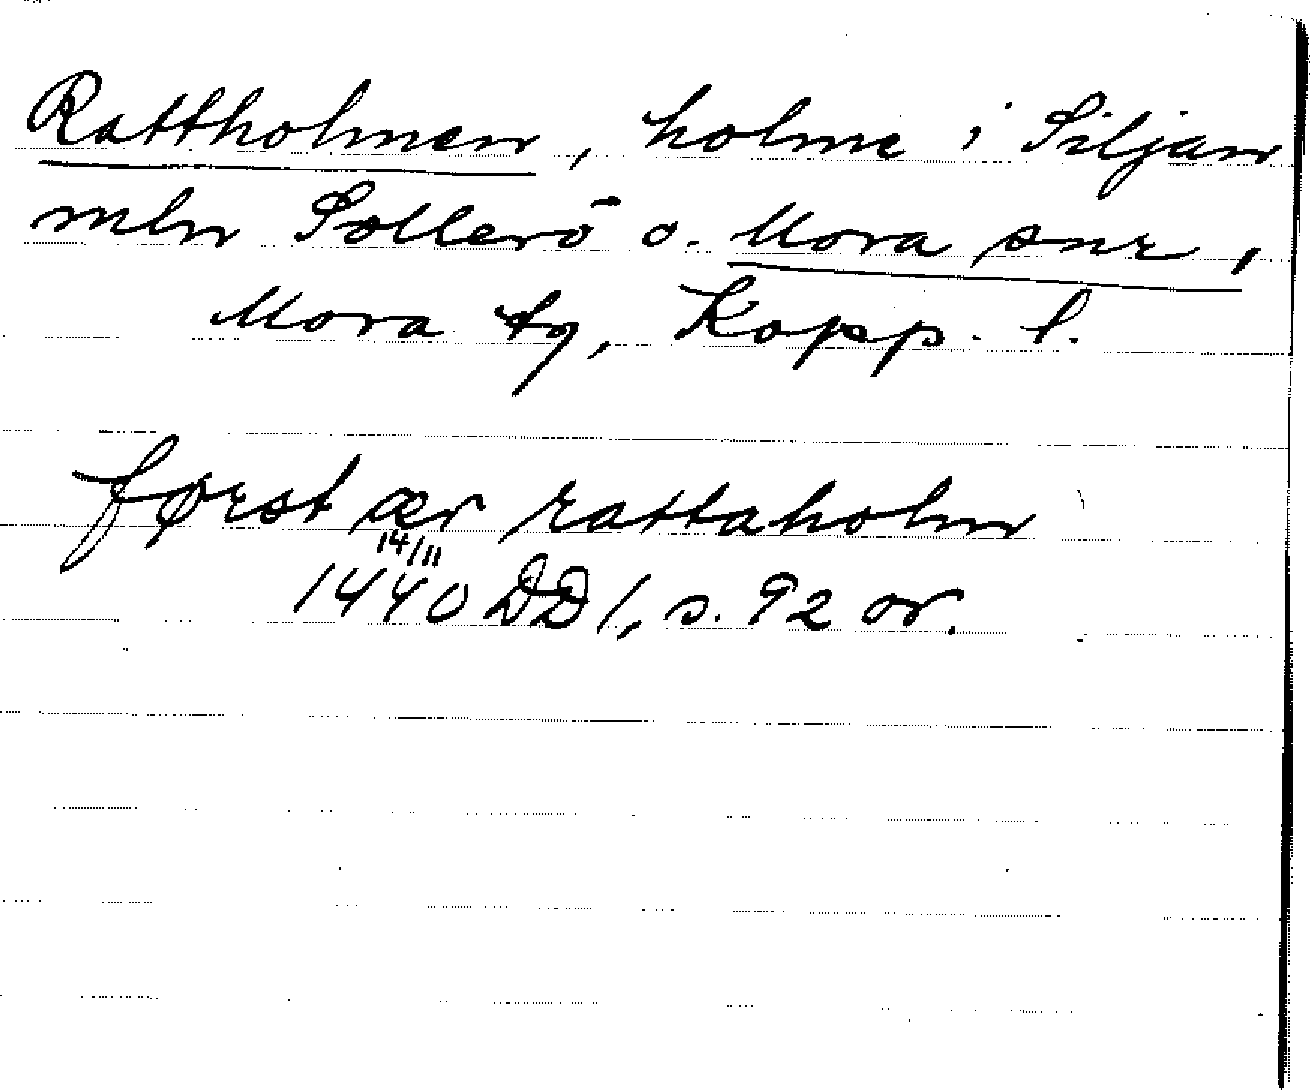 Rattholmen, holme i Siljan
mln Sollerö o. Mora snr,
Mora tg, Kopp. l.
først ær rattaholm
14/11
1440 DD 1, s. 92 or.